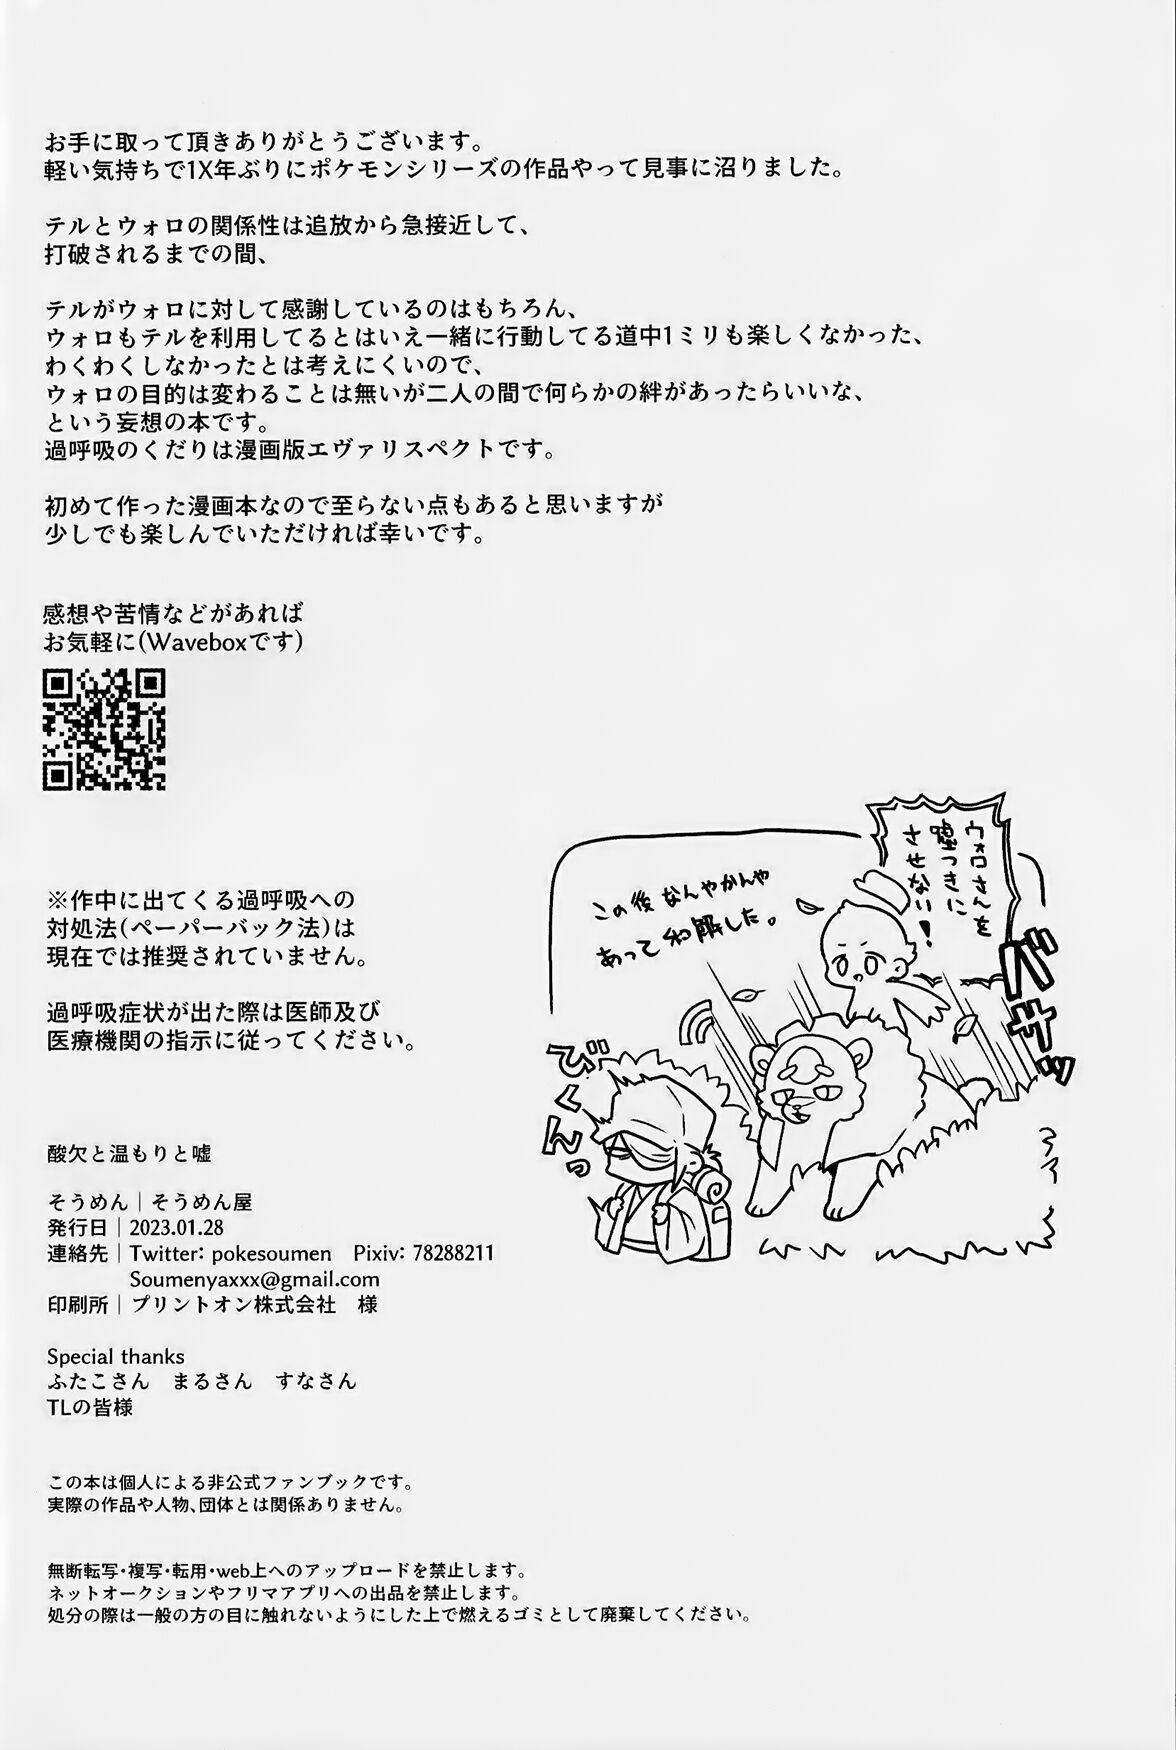 お手に取って頂きありがとうございます。
軽い気持ちで1X年ぶりにポケモンシリーズの作品やって見事に沼りました。
テルとウォロの関係性は追放から急接近して、
打破されるまでの間、
テルがウォロに対して感謝しているのはもちろん、
ウォロもテルを利用してるとはいえ一緒に行動してる道中1ミリも楽しくなかった、
わくわくしなかったとは考えにくいので、
ウォロの目的は変わることは無いが二人の間で何らかの絆があったらいいな、
という妄想の本です。
過呼吸のくだりは漫画版エヴァリスペクトです。
初めて作った漫画本なので至らない点もあると思いますが
少しでも楽しんでいただければ幸いです。
感想や苦情などがあれば
お気軽に(Waveboxです)
ウォロさんを
嘘つきに
させない!
この後なんやかんや
あって和解した。
バサッ
びくんっ
※作中に出てくる過呼吸への
対処法(ペーパーバック法)は
現在では推奨されていません。
過呼吸症状が出た際は医師及び
医療機関の指示に従ってください。
酸欠と温もりと嘘
そうめん｜そうめん屋
発行日｜2023.01.28
連絡先｜Twitter: pokesoumen　Pixiv: 78288211
Soumenyaxxx@gmail.com
印刷所｜プリントオン株式会社　様
Special thanks
ふたこさん　まるさん　すなさん
TLの皆様
この本は個人による非公式ファンブックです。
実際の作品や人物、団体とは関係ありません。
無断転写・複写・転用・web上へのアップロードを禁止します。
ネットオークションやフリマアプリへの出品を禁止します。
処分の際は一般の方の目に触れないようにした上で燃えるゴミとして廃棄してください。